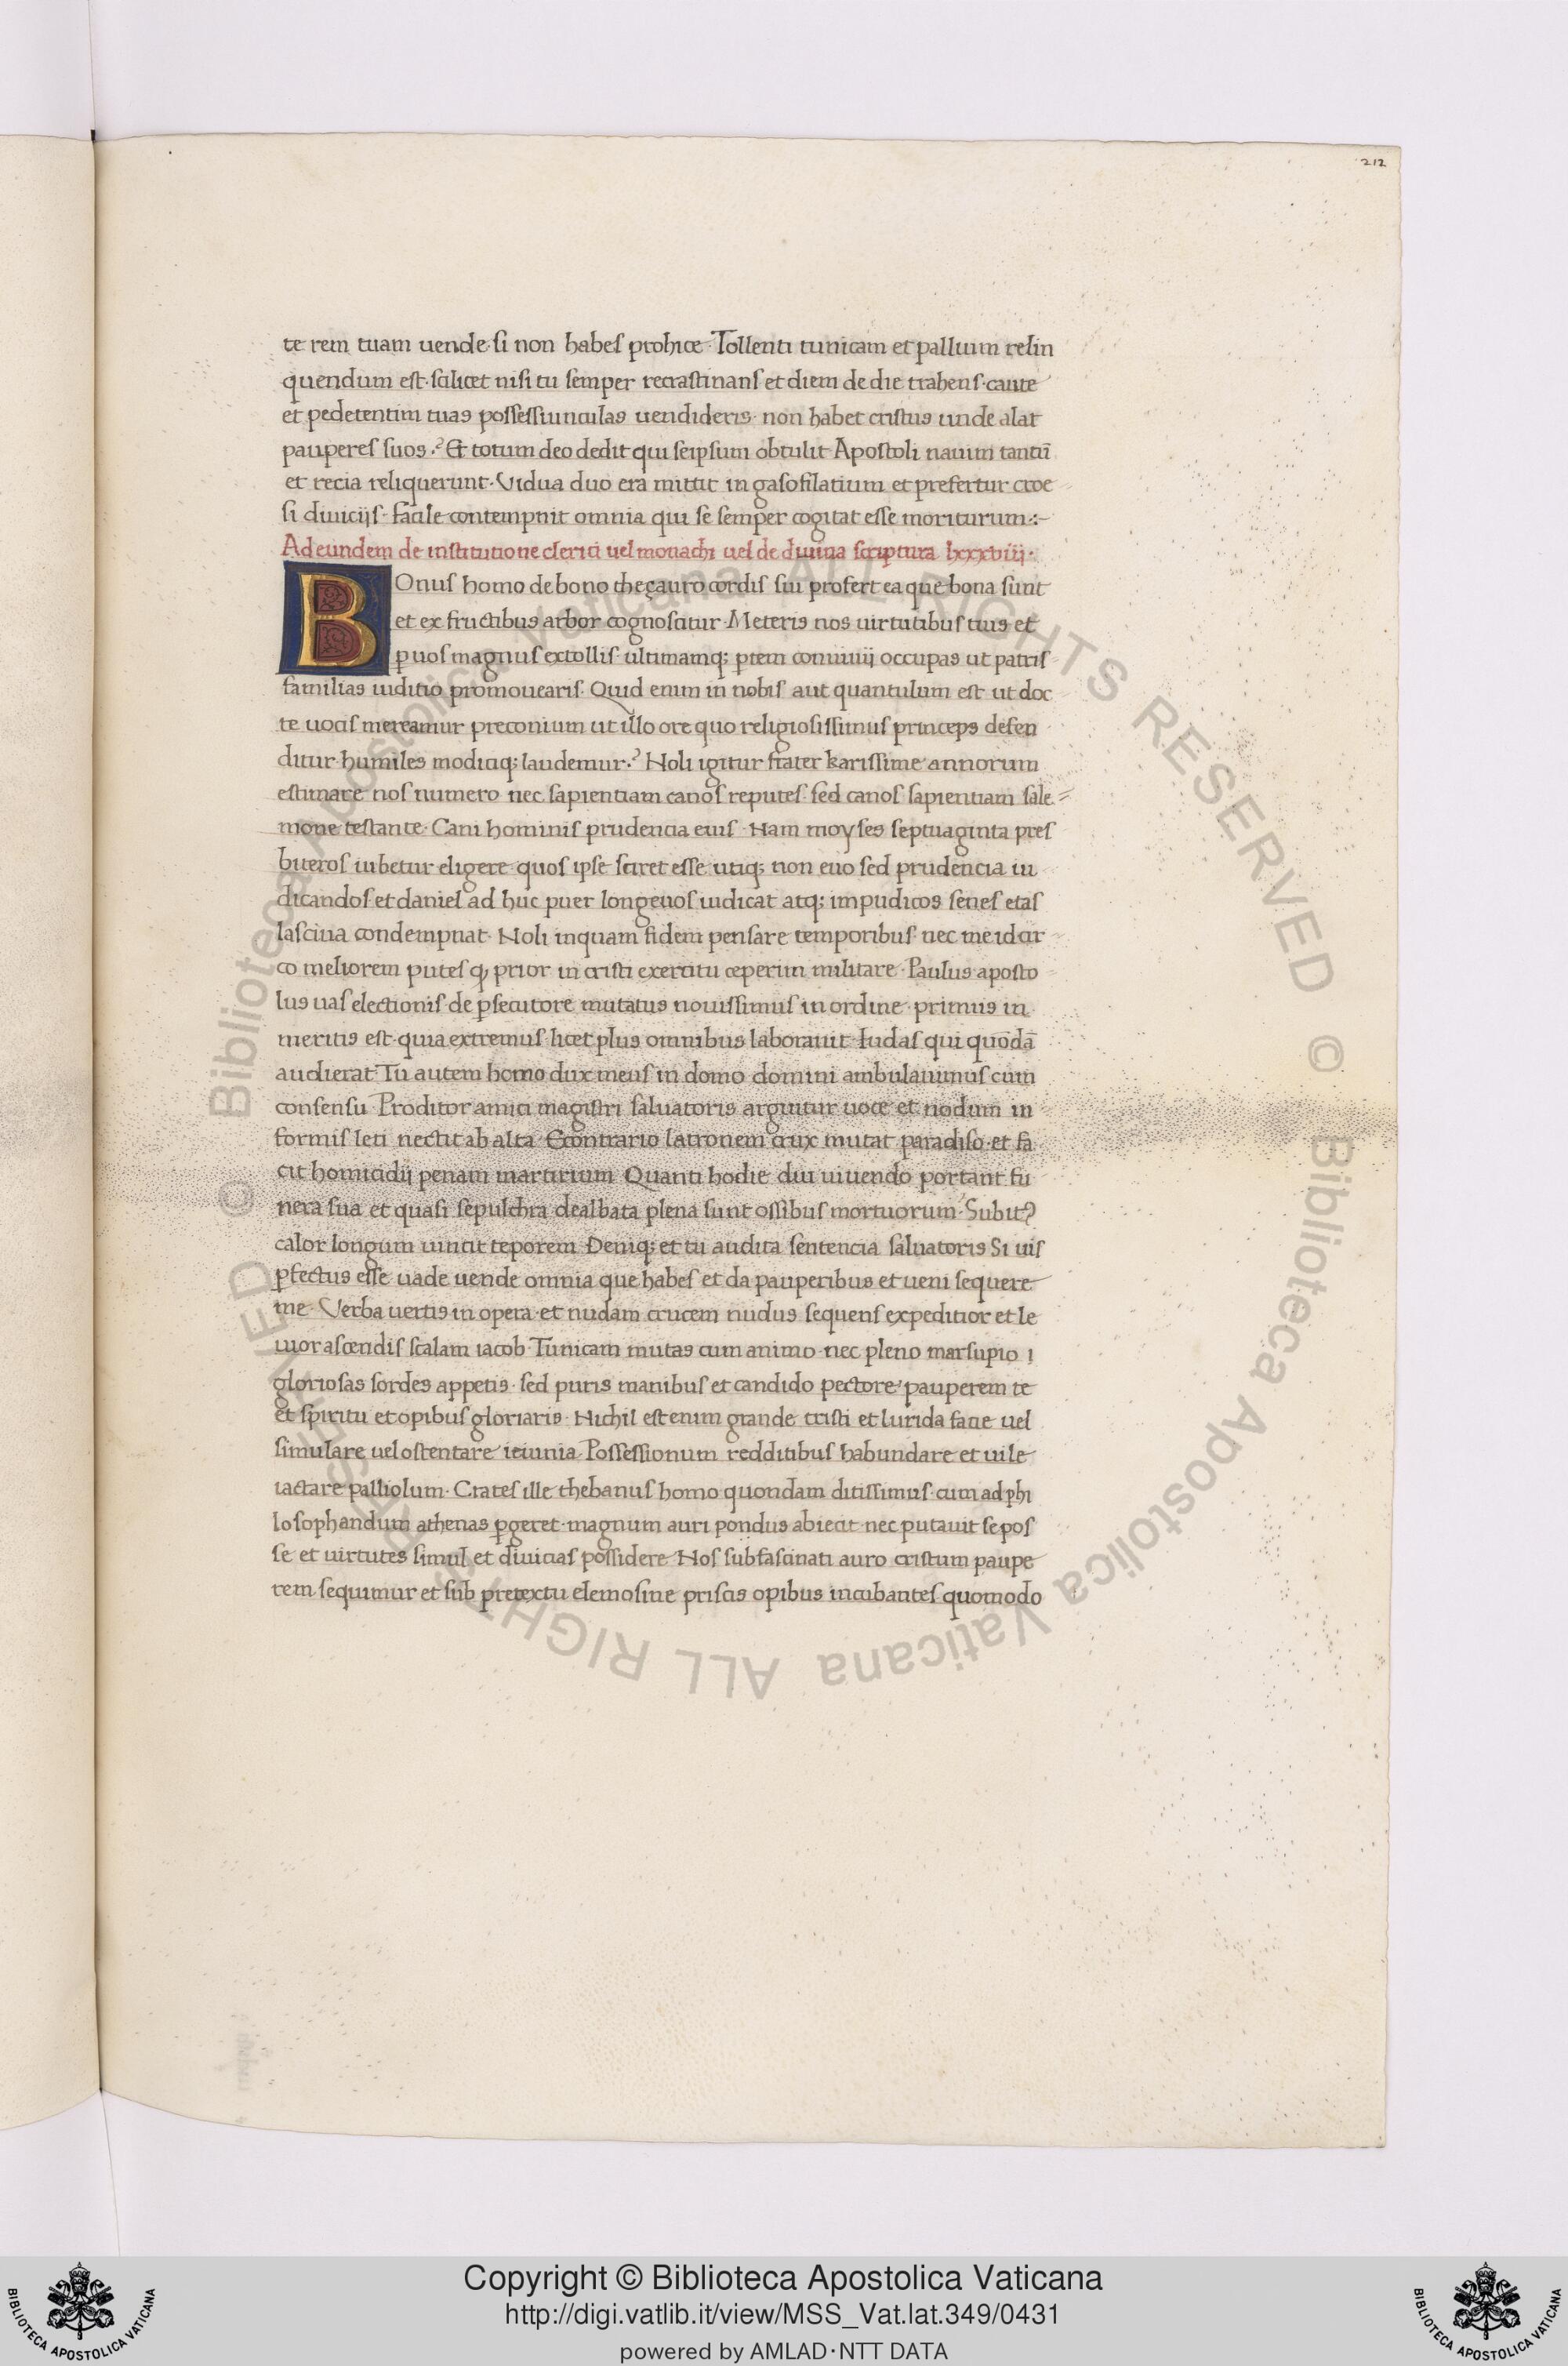 212
te rem tuam uende· si non habes prohice· Tollenti tunicam et pallium relin
quendum est· scilicet nisi tu semper recrastinans et diem de die trahens· caute
et pedetentim tuas possessiunculas uendideris· non habet cristus unde alat
pauperes suos·? Et totum deo dedit qui seipsum obtulit Apostoli nauim tantū
et recia reliquerunt· Vidua duo era mittit in gasofilatium et prefertur croe
si diuicijs· facile contempnit omnia qui se semper cogitat esse moriturum:-
Ad eundem de institutione clerici uel monachi uel de diuina scriptura lxxxviiij·
BOnus homo de bono theçauro cordis sui profert ea que bona sunt
et ex fructibus arbor cognoscitur· Meteris nos uirtutibus tuis et
ꝑuos magnus extollis· ultimamq; ꝑtem conuiuij occupas ut patris
familias iuditio promouearis· Quid enim in nobis aut quantulum est ut doc
te uocis mereamur preconium ut illo ore quo religiosissimus princeps defen
ditur· humiles modiciq; laudemur·? Noli igitur frater karissime annorum
estimare nos numero nec sapientiam canos reputes· sed canos sapientiam sale
mone testante· Cani hominis prudencia eius· Nam moyses septuaginta pres
biteros iubetur eligere· quos ipse sciret esse utiq; non euo sed prudencia iu
dicandos et daniel ad huc puer longeuos iudicat atq; impudicos senes etas
lasciua condempnat· Noli inquam fidem pensare temporibus· nec me idcir
co meliorem putes ꝙ prior in cristi exercitu ceperim militare· Paulus aposto
lus uas electionis· de ꝑsecutore mutatus nouissimus in ordine· primus in
meritis est· quia extremus· licet plus omnibus laborauit· Iudas qui quōdā
audierat Tu autem homo dux meus in domo domini ambulauimus cum
consensu Proditor amici magistri saluatoris arguitur uoce et nodum in
formis leti nectit ab alta Econtrario latronem crux mutat paradiso· et fa
cit homicidij penam martirium Quanti hodie diu uiuendo portant fu
nera sua et quasi sepulchra dealbata plena sunt ossibus mortuorum· Subit?
calor longum uincit teporem Deniq; et tu audita sentencia saluatoris Si uis
ꝑfectus esse uade uende omnia que habes et da pauperibus et ueni sequere
me· Verba uertis in opera· et nudam crucem nudus sequens expeditior et le
uior ascendis scalam iacob· Tunicam mutas cum animo· nec pleno marsupio
gloriosas sordes appetis· sed puris manibus et candido pectore pauperem te
et spiritu et opibus gloriaris· Nichil est enim grande tristi et lurida facie uel
simulare uel ostentare ieiunia· Possessionum redditibus habundare et uile
iactare palliolum· Crates ille thebanus homo quondam ditissimus· cum ad phi
losophandum athenas ꝑgeret· magnum auri pondus abiecit· nec putauit se pos
se et uirtutes simul et diuicias possidere Nos subfascinati auro cristum paupe
rem sequimur et sub pretextu elemosine priscis opibus incubantes quomodo
© Biblioteca Apostolica Vaticana ALL RIGHTS RESERVED © Biblioteca Apostolica Vaticana ALL RIGHTS RESERVED
Copyright © Biblioteca Apostolica Vaticana
http://digi.vatlib.it/view/MSS_Vat.lat.349/0431
powered by AMLAD·NTT DATA
BIBLIOTECA APOSTOLICA VATICANA
BIBLIOTECA APOSTOLICA VATICANA